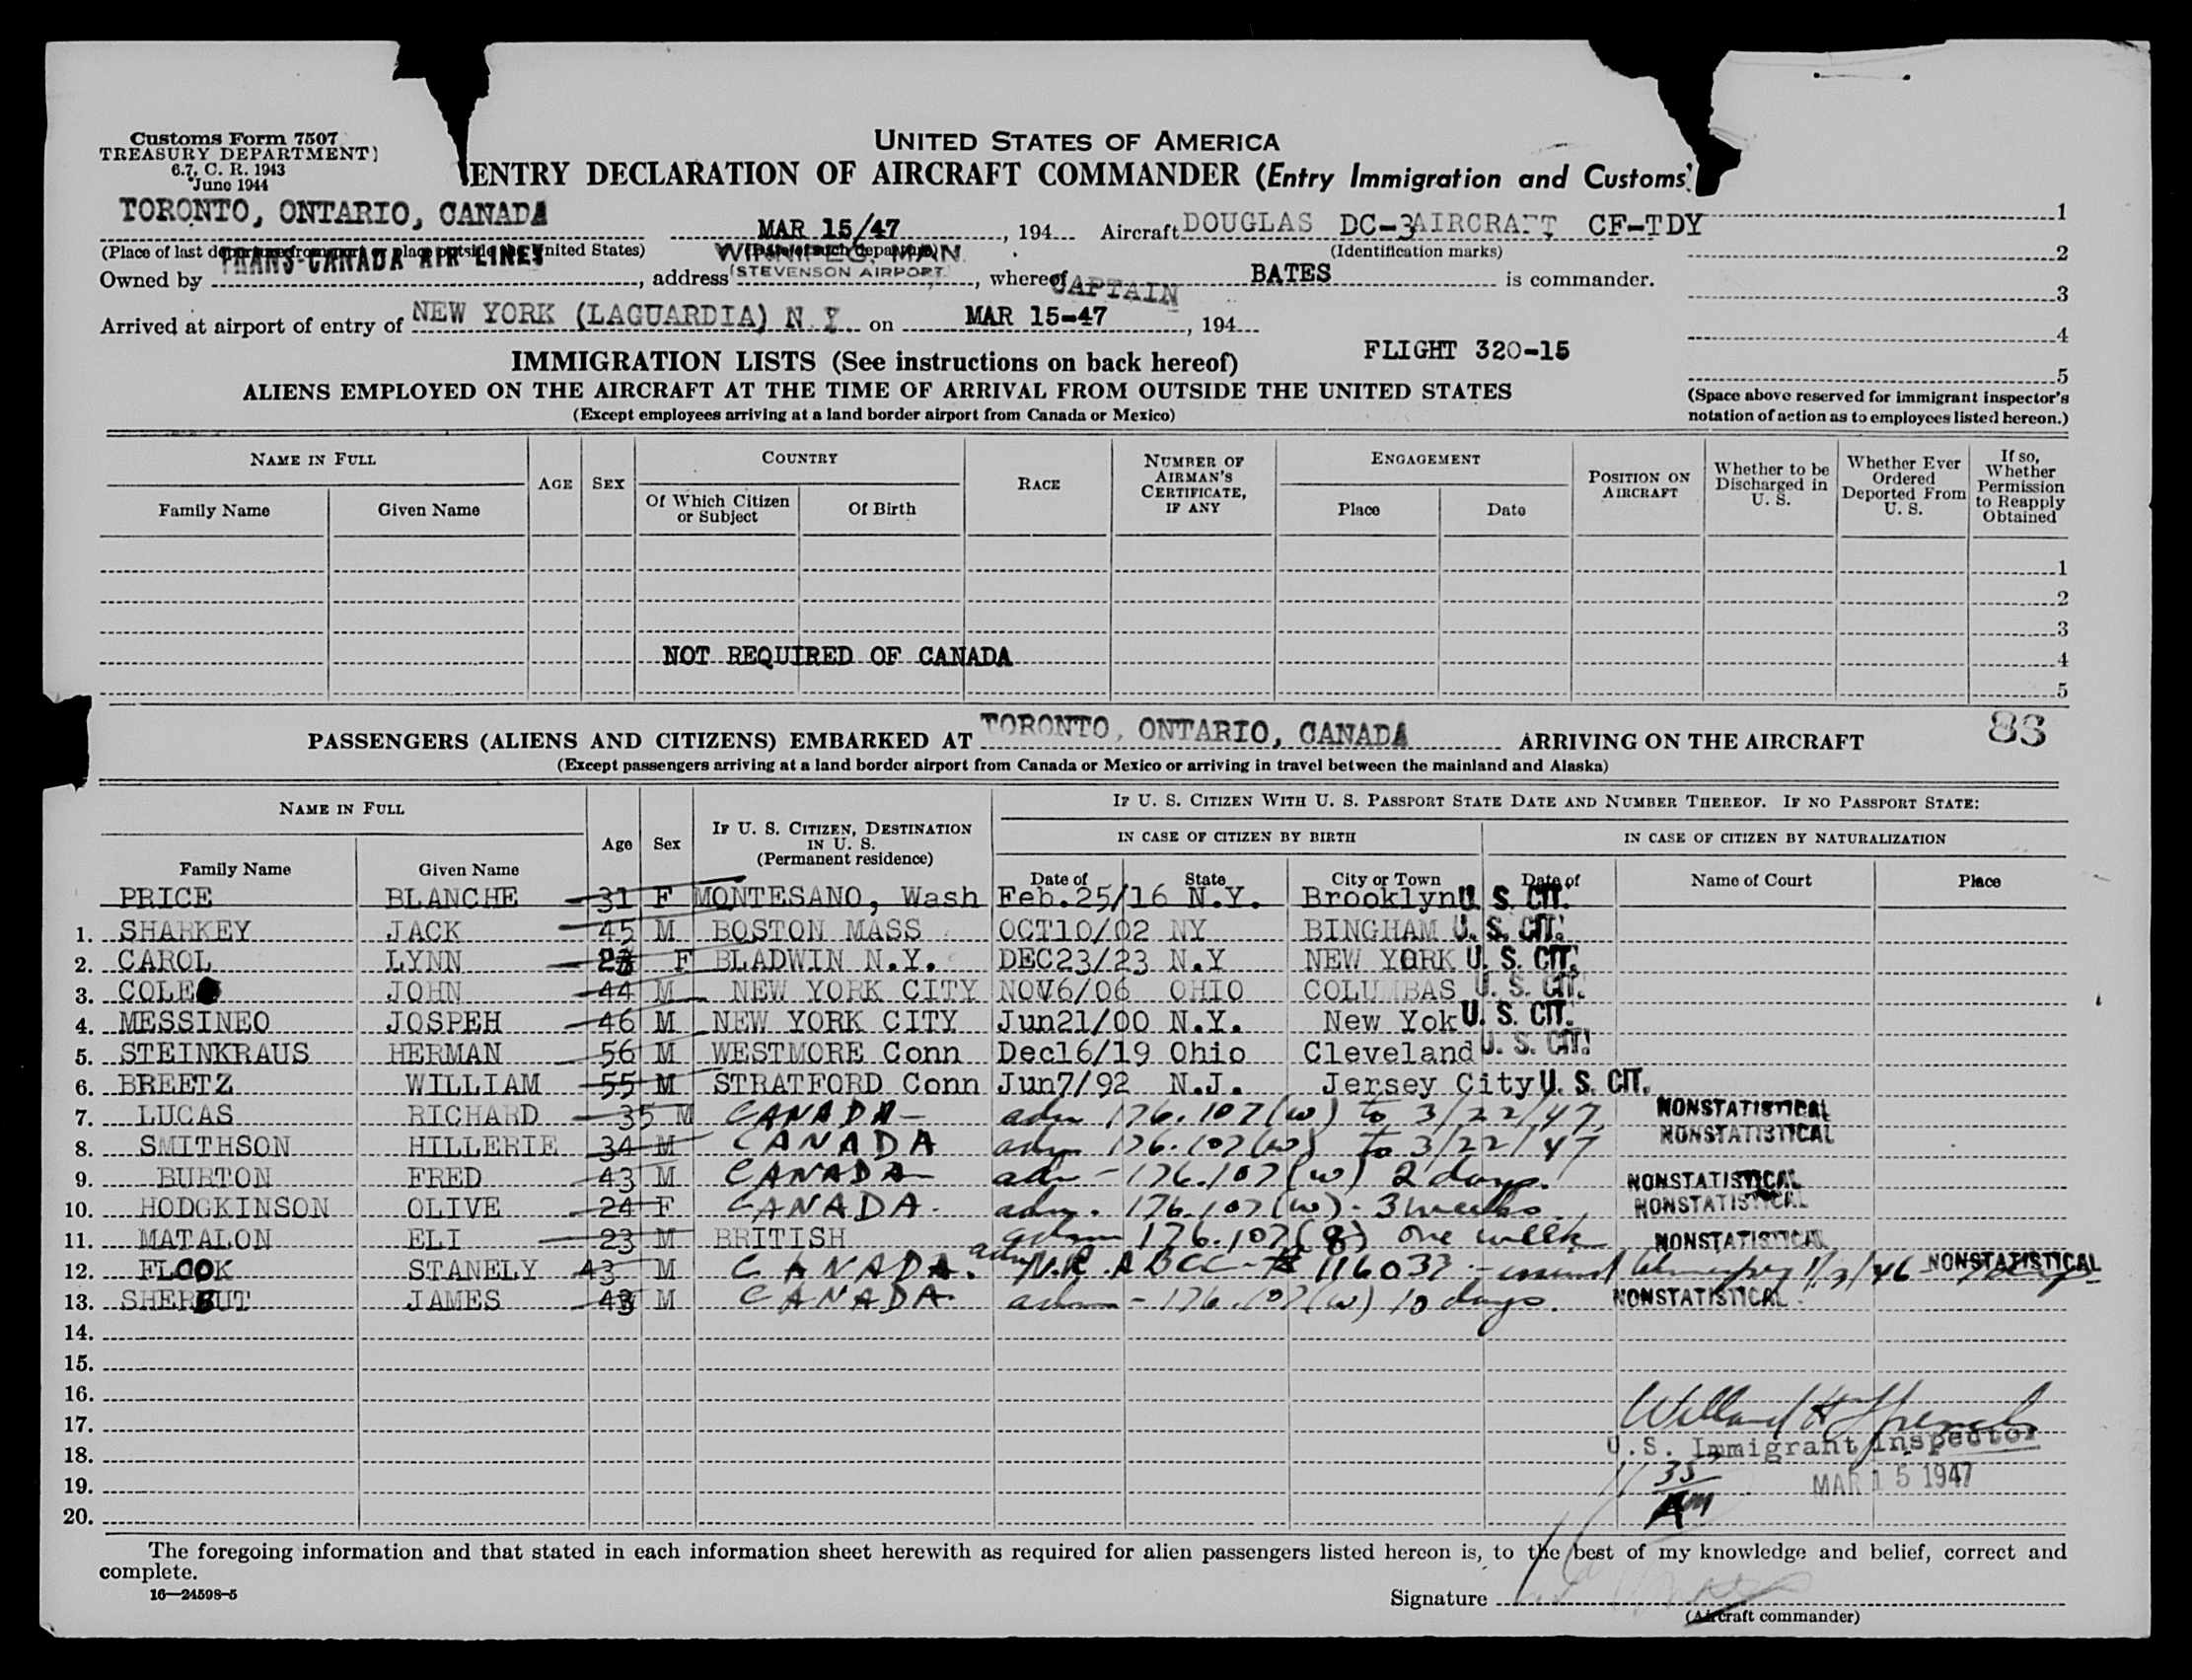 Customs Form 7507
TREASURY DEPARTMENT)
6.7, C. R. 1943
June 1944
UNITED STATES OF AMERICA
ENTRY DECLARATION OF AIRCRAFT COMMANDER (Entry Immigration and Customs)
TORONTO, ONTARIO, CANADA MAR 15/47, 194 Aircraft DOUGLAS DC-3 AIRCRAFT CF-TDY 1
(Place of last departure from port or place outside the United States) (Date of such departure) (Identification marks) 2
Owned by TRANS-CANADA AIR LINES, address WINNIPEG, MAN. (STEVENSON AIRPORT), whereof CAPTAIN BATES is commander. 3
Arrived at airport of entry of NEW YORK (LAGUARDIA) N.Y. on MAR 15-47, 194 4
IMMIGRATION LISTS (See instructions on back hereof) FLIGHT 320-15 5
ALIENS EMPLOYED ON THE AIRCRAFT AT THE TIME OF ARRIVAL FROM OUTSIDE THE UNITED STATES
(Except employees arriving at a land border airport from Canada or Mexico)
(Space above reserved for immigrant inspector's
notation of action as to employees listed hereon.)
NAME IN FULL AGE SEX COUNTRY RACE NUMBER OF AIRMAN'S CERTIFICATE, IF ANY ENGAGEMENT POSITION ON AIRCRAFT Whether to be Discharged in U. S. Whether Ever Ordered Deported From U. S. If so, Whether Permission to Reapply Obtained
Family Name Given Name Of Which Citizen or Subject Of Birth Place Date
1
2
3
NOT REQUIRED OF CANADA 4
5
PASSENGERS (ALIENS AND CITIZENS) EMBARKED AT TORONTO, ONTARIO, CANADA ARRIVING ON THE AIRCRAFT 83
(Except passengers arriving at a land border airport from Canada or Mexico or arriving in travel between the mainland and Alaska)
NAME IN FULL Age Sex IF U. S. CITIZEN, DESTINATION IN U. S. (Permanent residence) IF U. S. CITIZEN WITH U. S. PASSPORT STATE DATE AND NUMBER THEREOF. IF NO PASSPORT STATE:
IN CASE OF CITIZEN BY BIRTH IN CASE OF CITIZEN BY NATURALIZATION
Family Name Given Name Date of State City or Town Date of Name of Court Place
PRICE BLANCHE 31 F MONTESANO, Wash Feb.25/16 N.Y. Brooklyn U. S. CIT.
1. SHARKEY JACK 45 M BOSTON MASS OCT10/02 NY BINGHAM U. S. CIT.
2. CAROL LYNN 23 F BLADWIN N.Y. DEC23/23 N.Y NEW YORK U. S. CIT.
3. COLE JOHN 44 M NEW YORK CITY NOV6/06 OHIO COLUMBAS U. S. CIT.
4. MESSINEO JOSPEH 46 M NEW YORK CITY Jun21/00 N.Y. New Yok U. S. CIT.
5. STEINKRAUS HERMAN 56 M WESTMORE Conn Dec16/19 Ohio Cleveland U. S. CIT.
6. BREETZ WILLIAM 55 M STRATFORD Conn Jun7/92 N.J. Jersey City U. S. CIT.
7. LUCAS RICHARD 35 M CANADA - adm 176.107(w) to 3/22/47. NONSTATISTICAL
8. SMITHSON HILLERIE 34 M CANADA adm 176.107(w) to 3/22/47 NONSTATISTICAL
9. BURTON FRED 43 M CANADA adm - 176.107(w) 2 days. NONSTATISTICAL
10. HODGKINSON OLIVE 24 F CANADA. adm. 176.107(w). 3 weeks. NONSTATISTICAL
11. MATALON ELI 23 M BRITISH adm 176.107(8) one week NONSTATISTICAL
12. FLOOK STANELY 43 M CANADA. adm N.R. ABCC-# 116037 - issued 1/3/46 NONSTATISTICAL
13. SHERBUT JAMES 43 M CANADA. adm - 176.107(w) 10 days. NONSTATISTICAL
14.
15.
16.
17. Willard H
18. U.S. Immigrant Inspector
19. 11 35 MAR 15 1947
20. AM
The foregoing information and that stated in each information sheet herewith as required for alien passengers listed hereon is, to the best of my knowledge and belief, correct and
complete.
16—24598-5
Signature
(Aircraft commander)